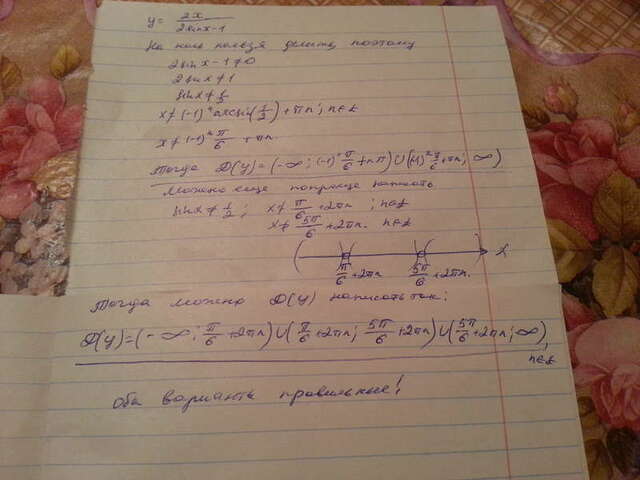 y = 2x / 2sinx-1
На ноль нельзя делить, поэтому
2sin x - 1 ≠ 0
2sin x ≠ 1
sin x ≠ 1/2
x ≠ (-1)ⁿ arcsin(1/2) + πn; n∈Z
x ≠ (-1)ⁿ π/6 + πn.
Тогда D(y) = (-∞; (-1)ⁿ π/6 + πn) ∪ ((-1)ⁿ π/6 + πn; ∞)
Можно еще попроще написать
sin x ≠ 1/2; x ≠ π/6 + 2πn ; n∈Z
x ≠ 5π/6 + 2πn. n∈Z
x
π/6 + 2πn 5π/6 + 2πn.
Тогда можно D(y) написать так:
D(y) = (-∞; π/6 + 2πn) ∪ (π/6 + 2πn; 5π/6 + 2πn) ∪ (5π/6 + 2πn; ∞),
n∈Z
Оба варианта правильные!